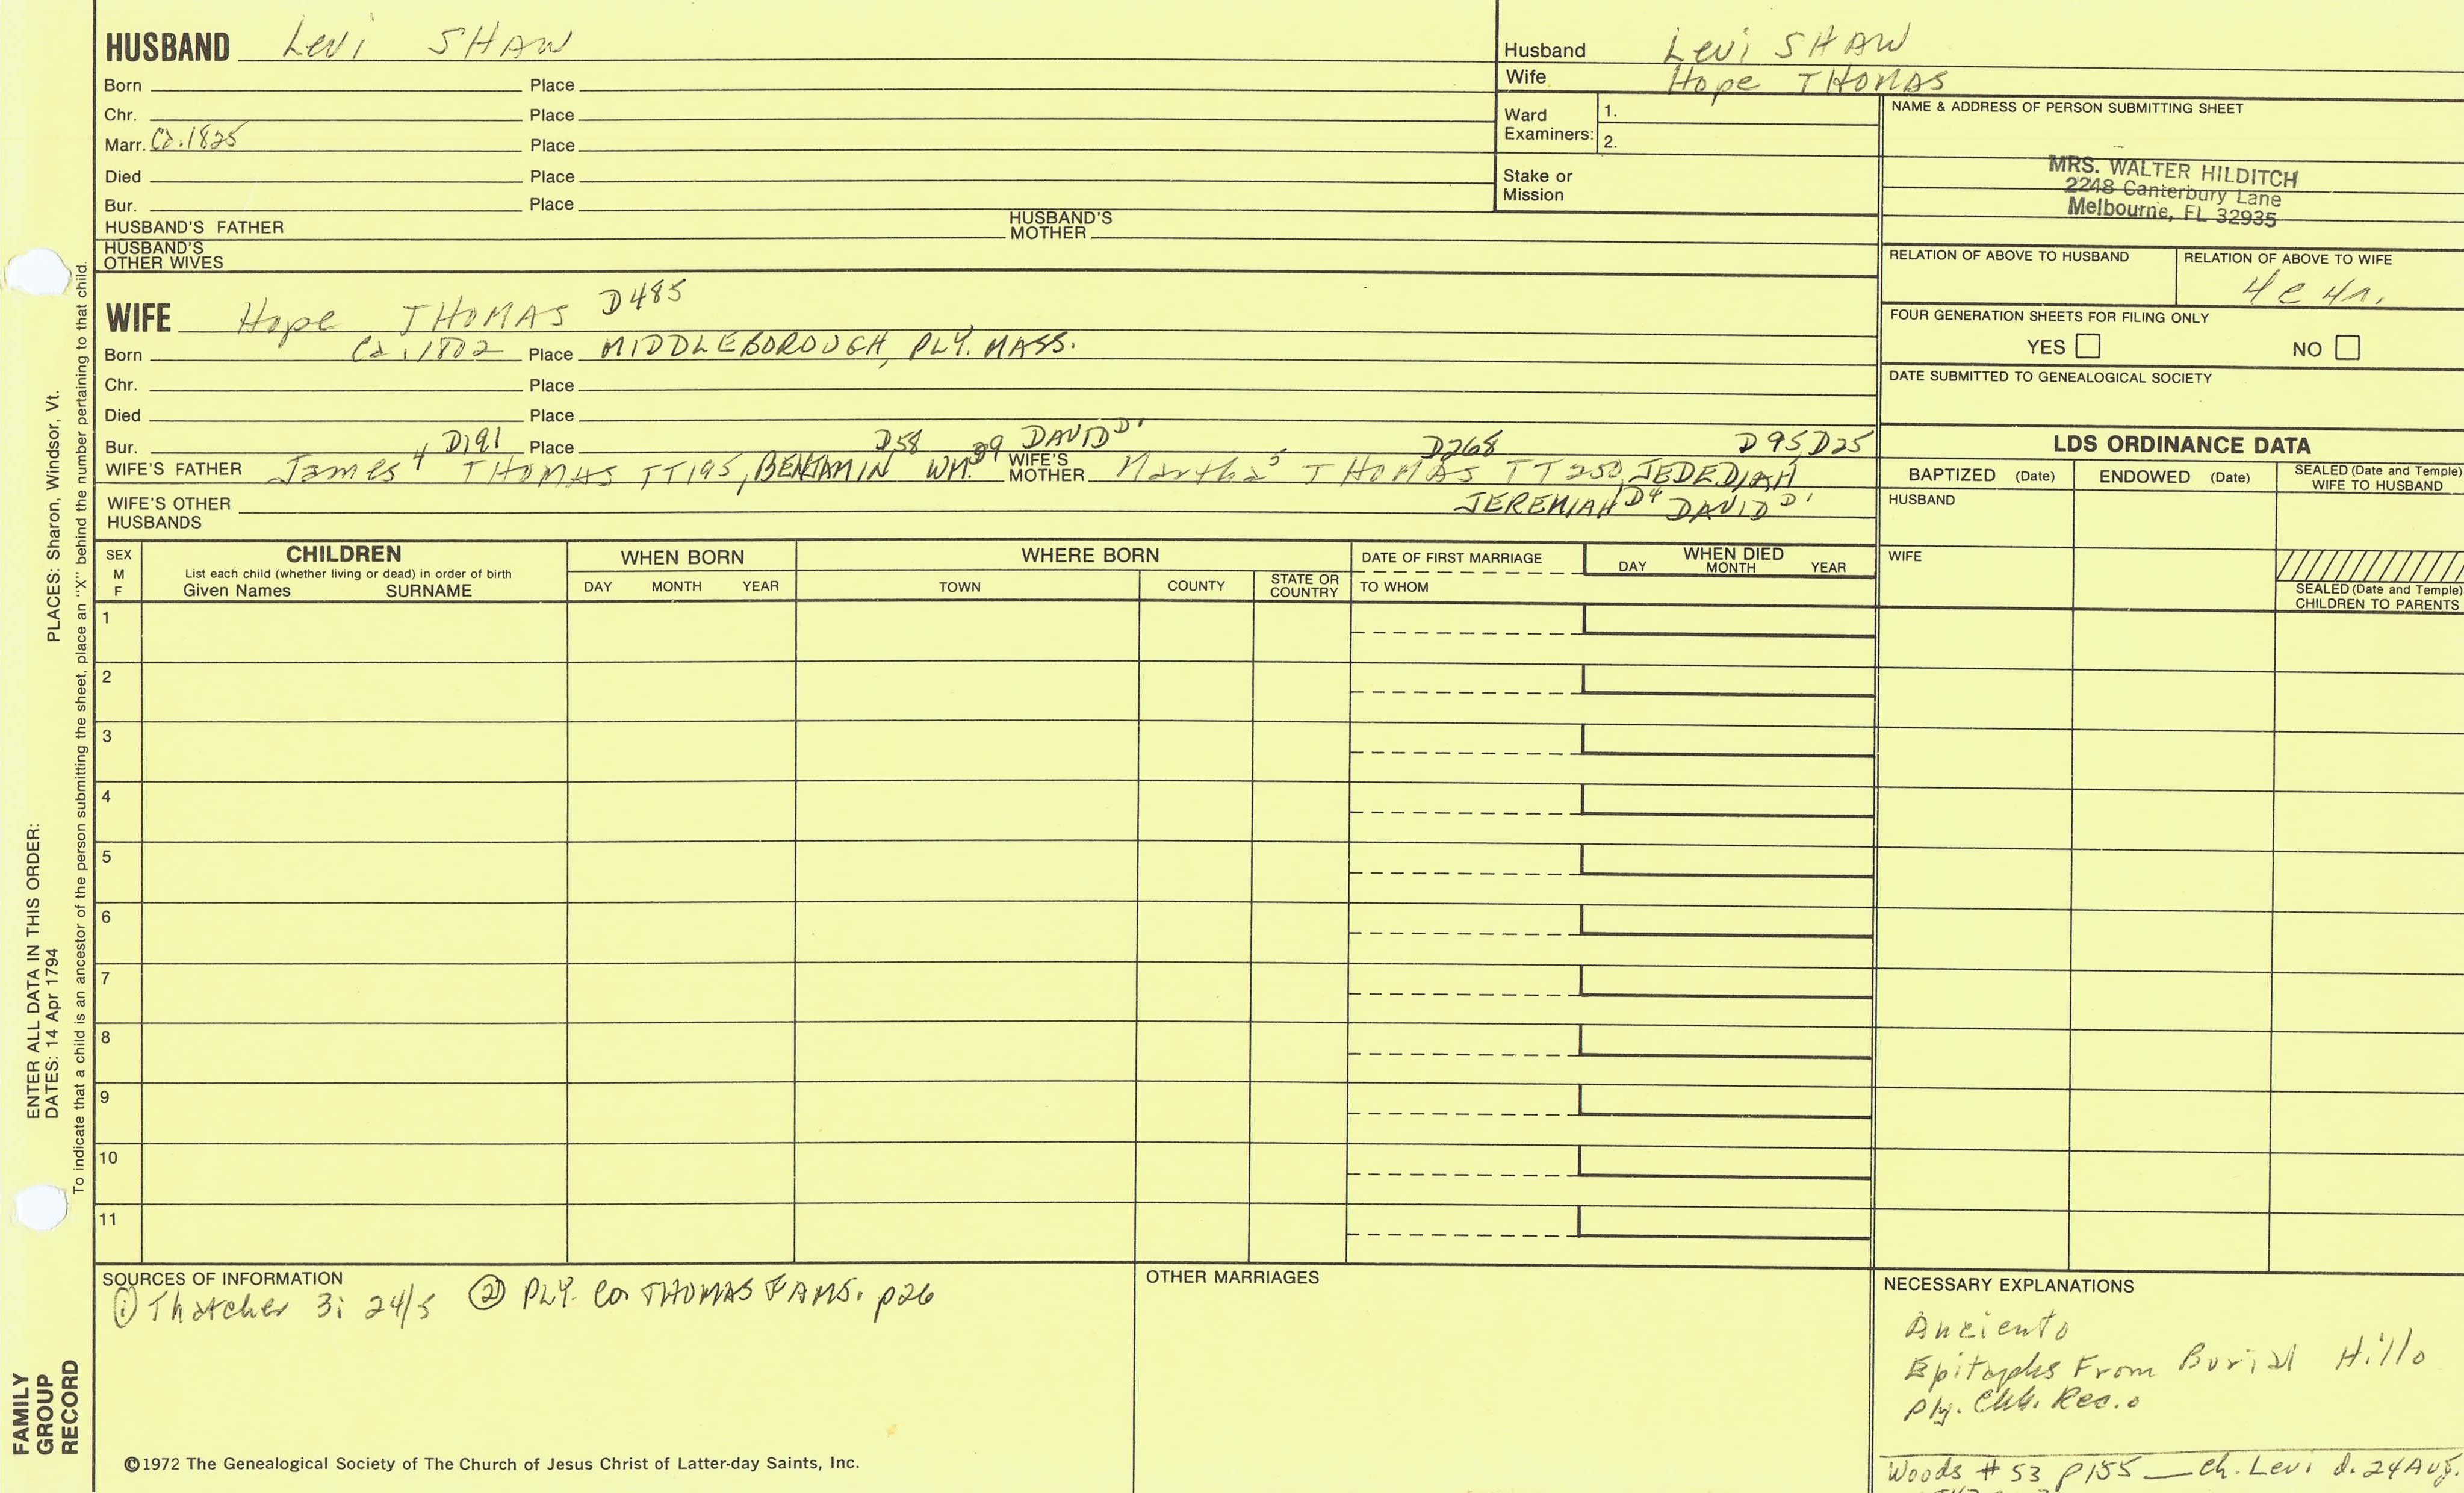 HUSBAND Levi SHAW
Born Place
Chr. Place
Marr. Ca. 1825 Place
Died Place
Bur. Place
HUSBAND'S FATHER HUSBAND'S MOTHER
HUSBAND'S OTHER WIVES
Husband Levi SHAW
Wife Hope THOMAS
Ward Examiners: 1.
2.
Stake or Mission
NAME & ADDRESS OF PERSON SUBMITTING SHEET
MRS. WALTER HILDITCH
2248 Canterbury Lane
Melbourne, FL 32935
RELATION OF ABOVE TO HUSBAND RELATION OF ABOVE TO WIFE
4c 4r.
FOUR GENERATION SHEETS FOR FILING ONLY
YES NO
DATE SUBMITTED TO GENEALOGICAL SOCIETY
WIFE Hope THOMAS D485
Born Ca. 1802 Place MIDDLEBOROUGH, PLY. MASS.
Chr. Place
Died Place
Bur. D191 Place D58 D9 DAVID D1 D268 D95 D25
WIFE'S FATHER James 4 THOMAS TT195, BENJAMIN WM. WIFE'S MOTHER Martha 5 THOMAS TT250, JEDEDIAH,
JEREMIAH D4 DAVID D1
WIFE'S OTHER HUSBANDS
LDS ORDINANCE DATA
BAPTIZED (Date) ENDOWED (Date) SEALED (Date and Temple) WIFE TO HUSBAND
HUSBAND
WIFE
SEALED (Date and Temple) CHILDREN TO PARENTS
SEX M F
CHILDREN
List each child (whether living or dead) in order of birth
Given Names SURNAME
WHEN BORN
DAY MONTH YEAR
WHERE BORN
TOWN COUNTY STATE OR COUNTRY
DATE OF FIRST MARRIAGE
TO WHOM
WHEN DIED
DAY MONTH YEAR
1
2
3
4
5
6
7
8
9
10
11
SOURCES OF INFORMATION
① Thatcher 3: 24/5 ② PLY. Co. THOMAS FAMS. p26
OTHER MARRIAGES
NECESSARY EXPLANATIONS
Anciento
Epitaphs From Burial Hillo
Ply. Chh. Rec.o
Woods # 53 p155 — ch. Levi d. 24 Aug.
©1972 The Genealogical Society of The Church of Jesus Christ of Latter-day Saints, Inc.
PLACES: Sharon, Windsor, Vt.
ENTER ALL DATA IN THIS ORDER:
DATES: 14 Apr 1794
To indicate that a child is an ancestor of the person submitting the sheet, place an "X" behind the number pertaining to that child.
FAMILY
GROUP
RECORD